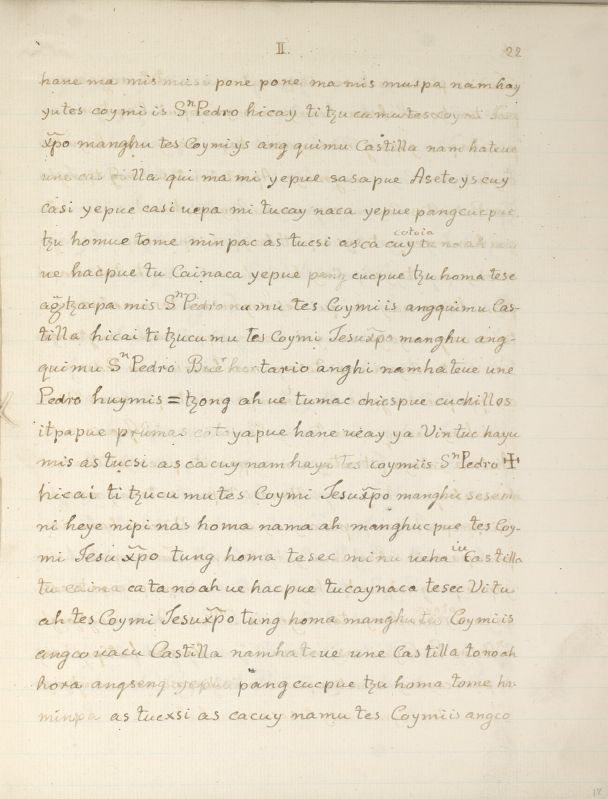 II.
22
hane ma mis musi pone pone ma mis muspa namhay
yutes coymi is Sⁿ Pedro hicay ti tzucamutes coymi
xp̃o manghu tes Coymiys ang quimu Castilla nam hateue
une cas lla qui ma mi yepue sasapue Aseteyscuy
casi yepue casi uepa mi tucay naca yepue pangcucpue
cotoia
tzu homue tome minpac as tucsi asca cuy ta noah
ue hacpue tu Cainaca yepue pang cucpue tzu homa tese
tzacpa mis Sⁿ Pedro numu tes Coymiis angquimu Cas-
tilla hicai ti tzucumu tes Coymi Jesuxp̃o manghu ang-
quimu Sⁿ Pedro tario anghi namhateue une
Pedro huymis = tzong ah ue tumac chicspue cuchillos
itpapue prumas coto yapue hane ueay ya Vintuc hayu
mis as tucsi as cacuy namhayu tes coymiis Sⁿ Pedro ✠
hicai ti tzucumutes Coymi Jesuxp̃o manghu
ni heye nipinas homa nama ah manghucpue tes Coy-
mi Jesu xp̃o tung homa tesec minu ueha Castilla
iu
tu caina cata noah ue hacpue tucaynaca tesec Vitu
ah tes Coymi Jesuxp̃o tung homa manghu tes Coymiis
angco uacu Castilla namhateue une Castilla tonoah
hora angseng yepue pang cucpue tzu homa tome ha-
minpa as tucxsi as cacuy namu tes Coymiis angco